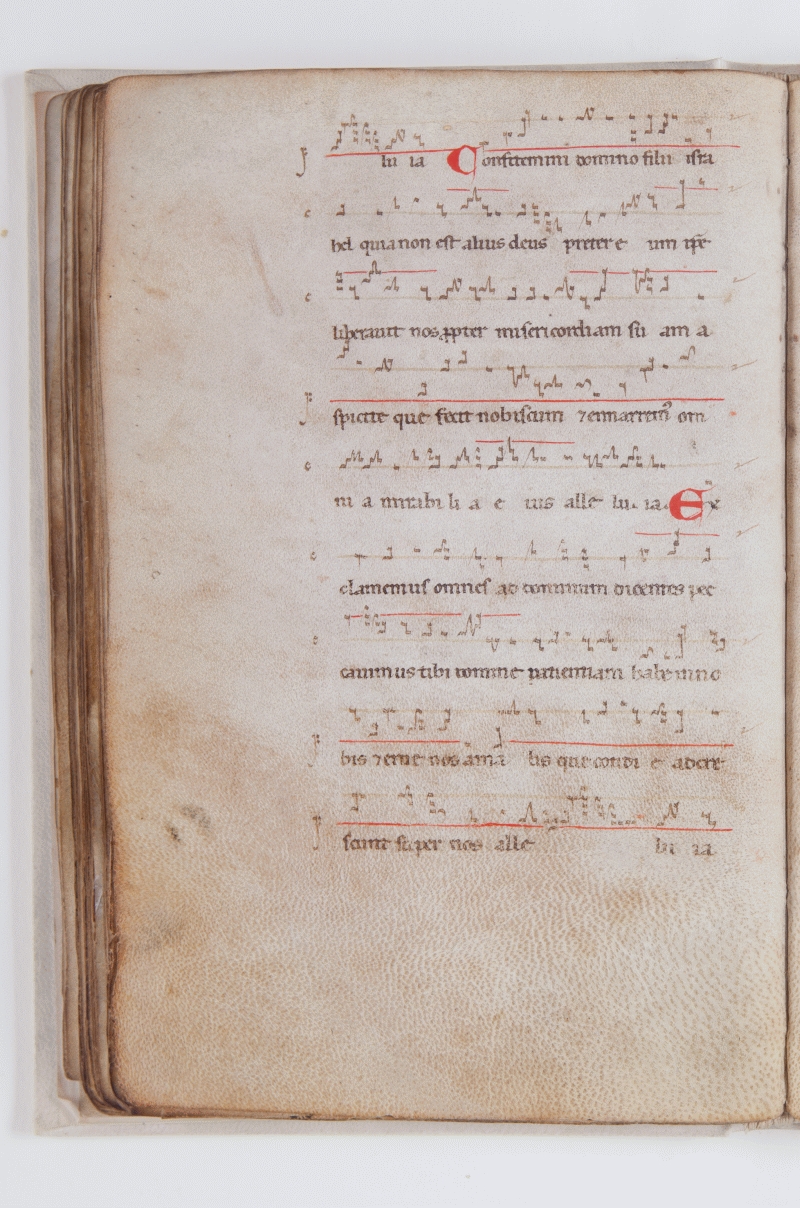 lu ia Confitemini domino filii isra
hel quia non est alius deus preter e um ipse
liberavit nos ꝓpter misericordiam su am a
spicite que fecit nobiscum ⁊ enarrem⁹ om
ni a mirabi li a e ius alle lu. ia. Ex
clamemus omnes ad dominum dicentes pec
cavimus tibi domine patientiam habe in no
bis ⁊ erue nos a ma lis que cotidi e ad cre
scunt super nos alle lu ia